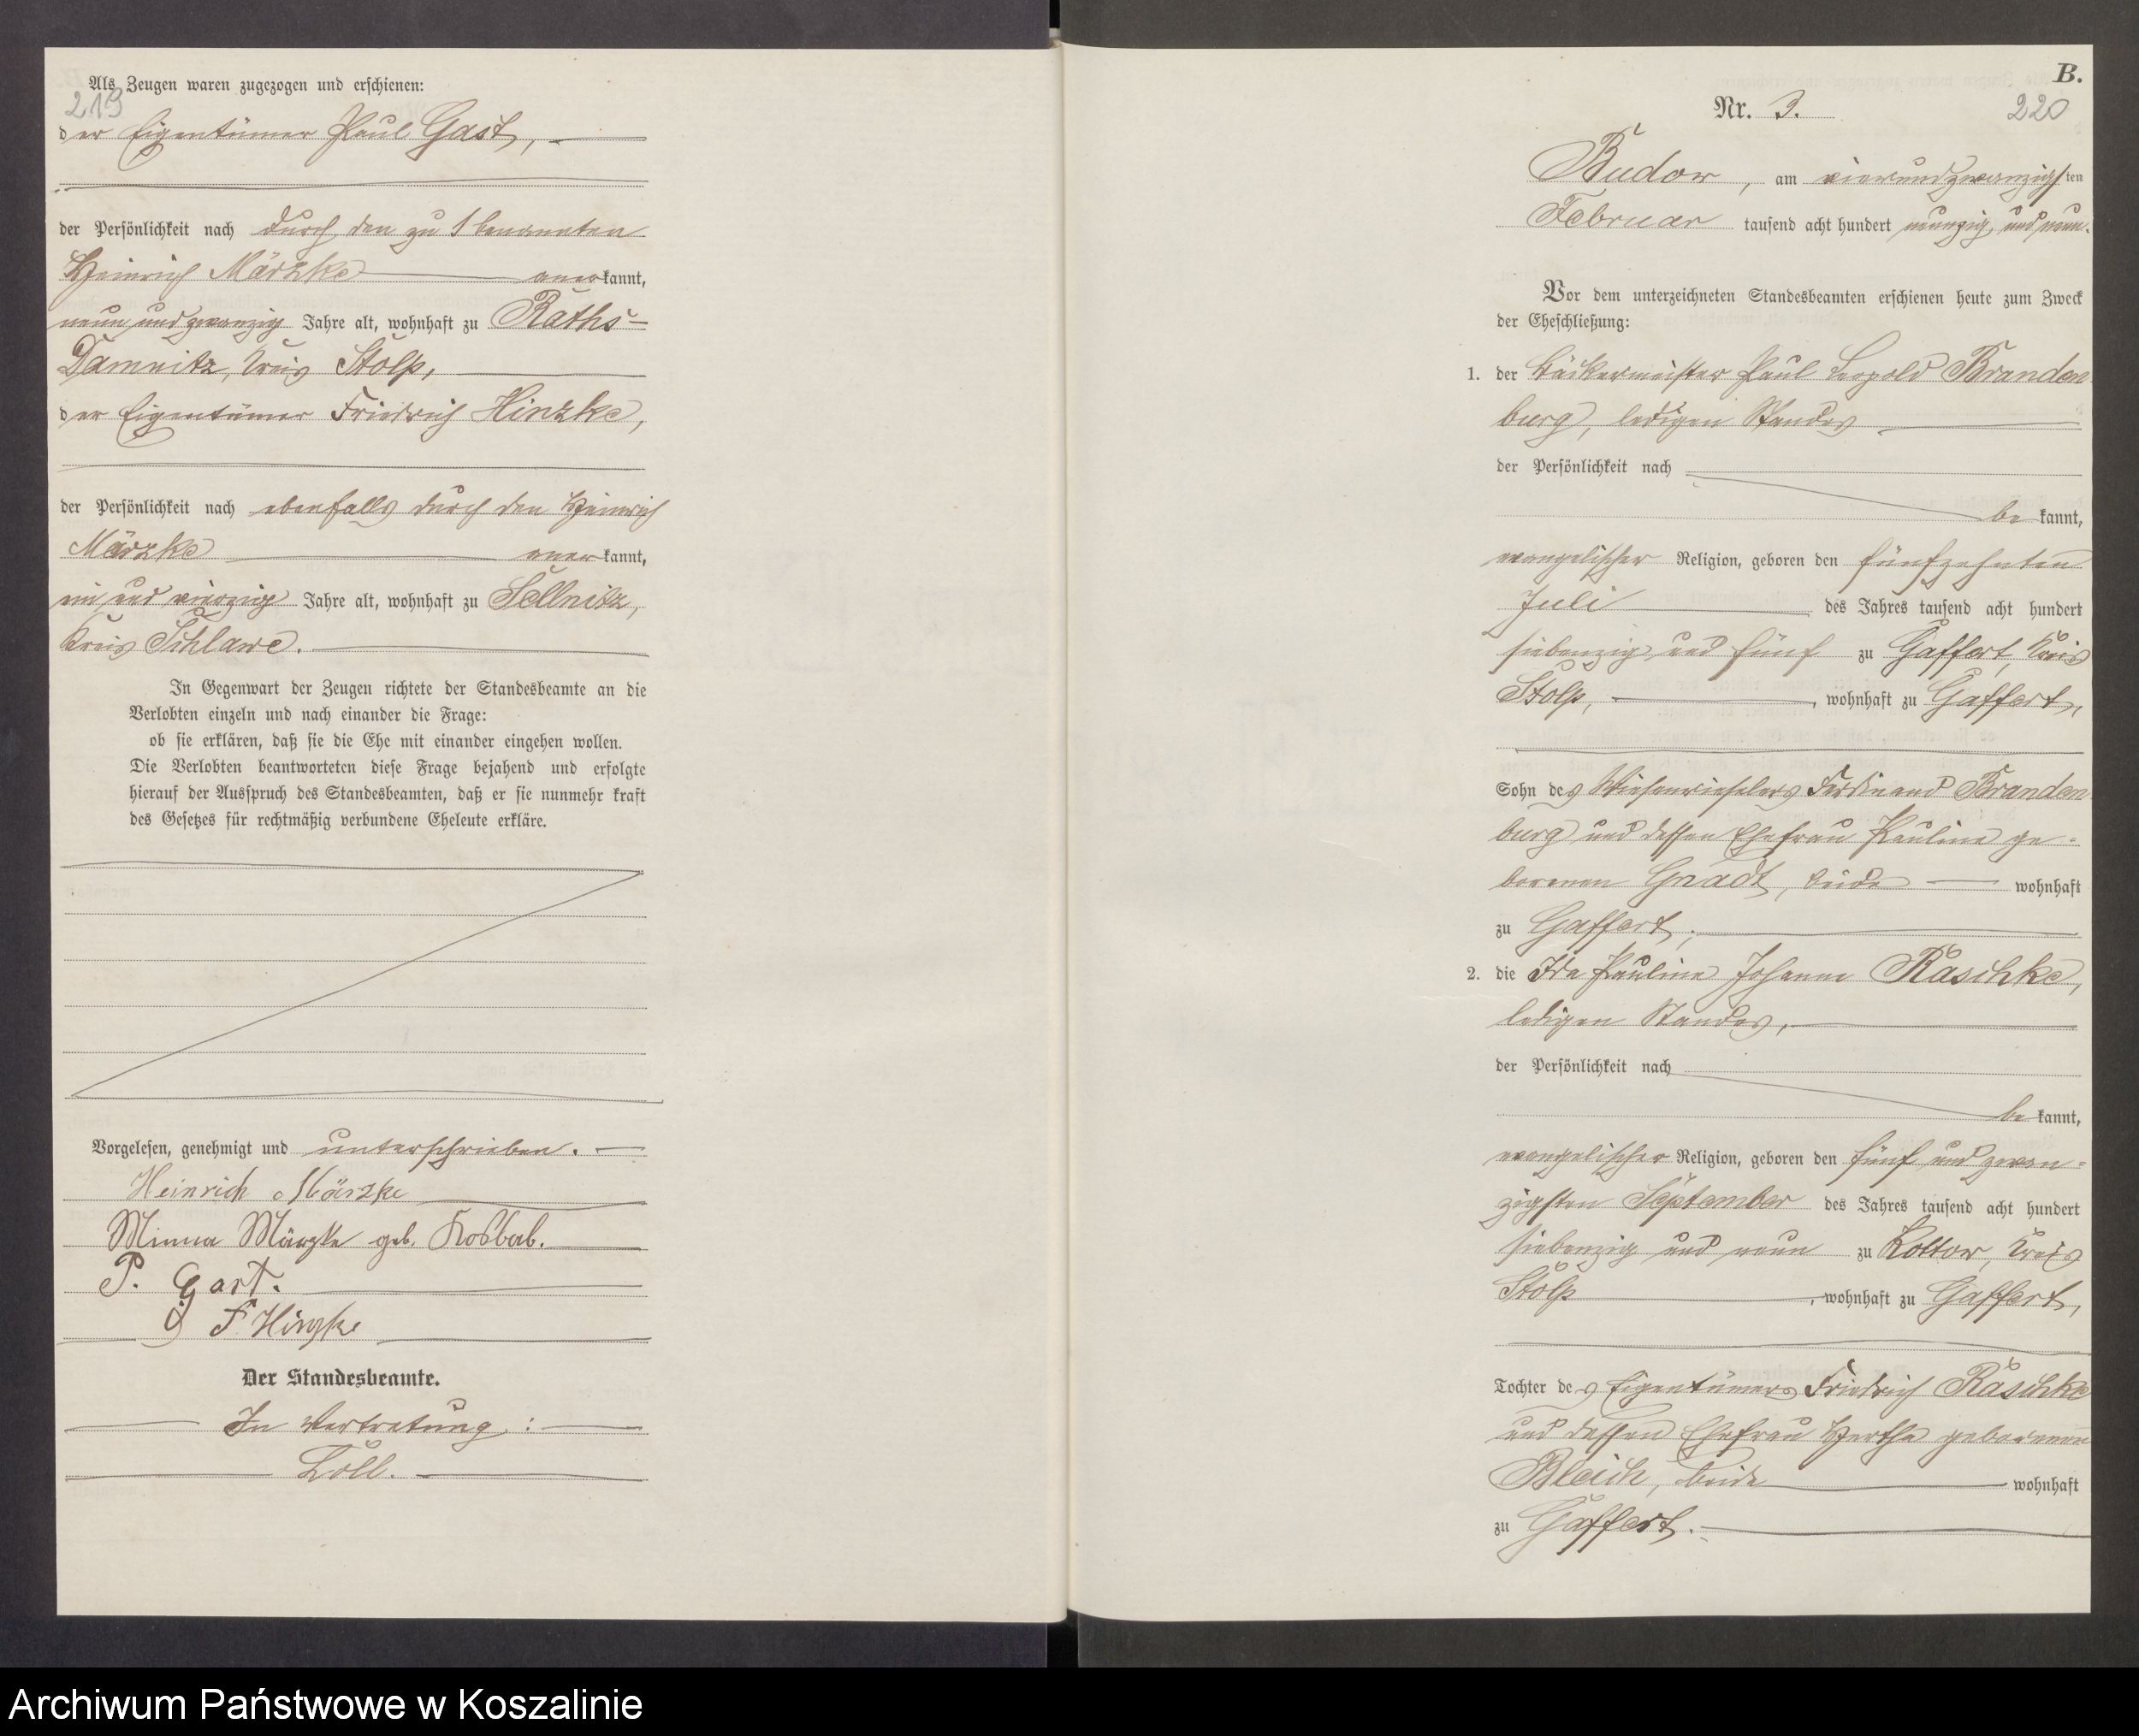 Als Zeugen waren zugezogen und erschienen:
219
der Eigentümer Paul Gast,
der Persönlichkeit nach durch den zu 1 benannten
Heinrich Märzke anerkannt,
neun und zwanzig Jahre alt, wohnhaft zu Raths-
Damnitz, Kreis Stolp,
der Eigentümer Friedrich Hinzke,
der Persönlichkeit nach ebenfalls durch den Heinrich
Märzke anerkannt,
ein und vierzig Jahre alt, wohnhaft zu Sellnitz,
Kreis Schlawe.
In Gegenwart der Zeugen richtete der Standesbeamte an die
Verlobten einzeln und nach einander die Frage:
ob sie erklären, daß sie die Ehe mit einander eingehen wollen.
Die Verlobten beantworteten diese Frage bejahend und erfolgte
hierauf der Ausspruch des Standesbeamten, daß er sie nunmehr kraft
des Gesetzes für rechtmäßig verbundene Eheleute erkläre.
Vorgelesen, genehmigt und unterschrieben.
Heinrich Märzke
Minna Märzke geb. Kosbab.
P. Gast.
F Hinzke
Der Standesbeamte.
In Vertretung:
Löll.
B.
Nr. 3.
220
Budow, am vierundzwanzigsten
Februar tausend acht hundert neunzig und neun.
Vor dem unterzeichneten Standesbeamten erschienen heute zum Zweck
der Eheschließung:
1. der Bäckermeister Paul Leopold Branden
burg, ledigen Standes
der Persönlichkeit nach
bekannt,
evangelischer Religion, geboren den fünfzehnten
Juli des Jahres tausend acht hundert
siebenzig und fünf zu Gaffert, Kreis
Stolp, wohnhaft zu Gaffert,
Sohn des Wiesenrieselers Ferdinand Branden
burg und dessen Ehefrau Pauline ge-
borenen Gnadt, beide wohnhaft
zu Gaffert;
2. die Ida Pauline Johanne Raschke,
ledigen Standes,
der Persönlichkeit nach
bekannt,
evangelischer Religion, geboren den fünf und zwan-
zigsten September des Jahres tausend acht hundert
siebenzig und neun zu Kottow, Kreis
Stolp, wohnhaft zu Gaffert,
Tochter des Eigentümers Friedrich Raschke
und dessen Ehefrau Hertha geborenen
Bleich, beide wohnhaft
zu Gaffert.
Archiwum Państwowe w Koszalinie